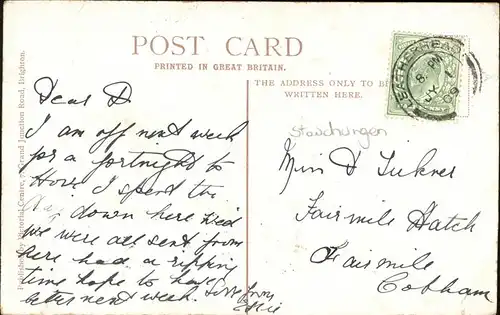 POST CARD
PRINTED IN GREAT BRITAIN.
THE ADDRESS ONLY TO BE
WRITTEN HERE.
LEATHERHEAD
8. PM
JY 1
9
Grand Junction Road, Brighton.
Stauchungen
Dear D
I am off next week
for a fortnight to
Hove I spent the
day down here Wed
we were all sent from
here had a ripping
time hope to have
better next week. Love from
Elsie
Miss D Tickner
Fairmile Hatch
Fairmile
Cobham